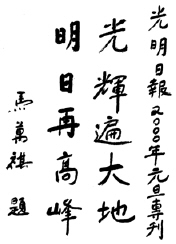 光明日報二〇〇〇年元旦專刊
光輝遍大地
明日再高峰
馬萬祺 題